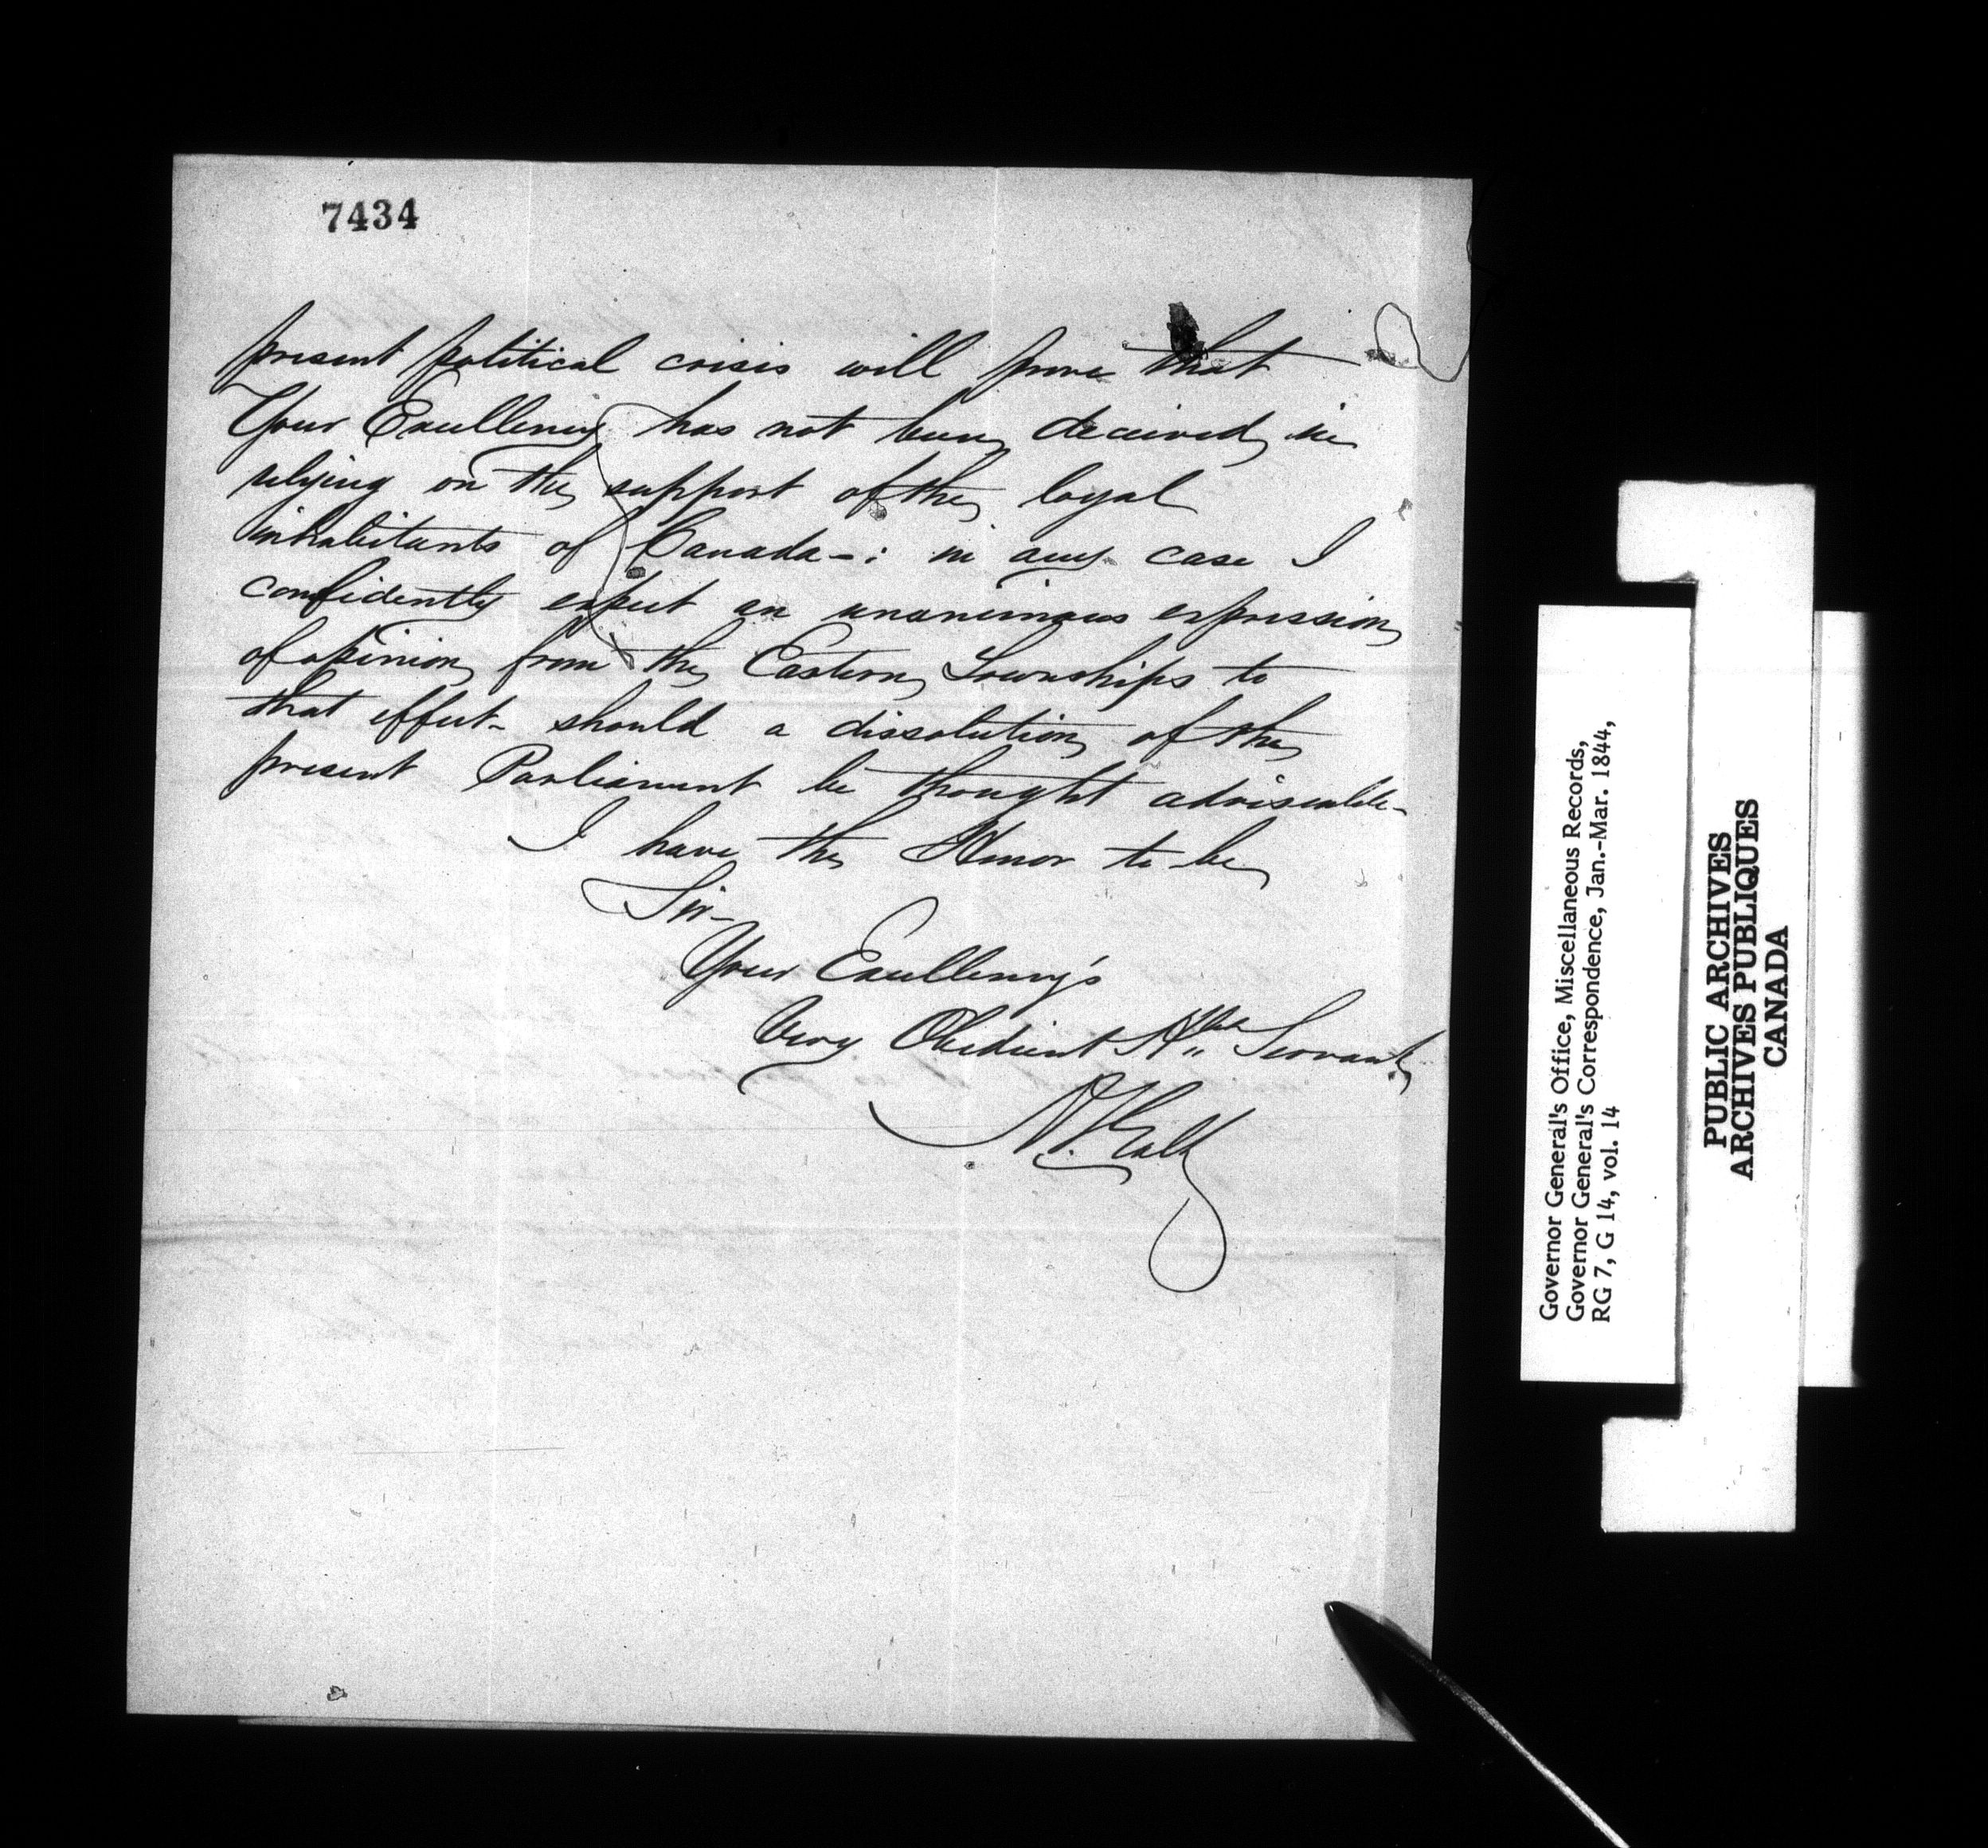 7434
present political crisis will prove that
Your Excellency has not been deceived in
relying on the support of the loyal
inhabitants of Canada-: in any case I
confidently expect an unanimous expression
of opinion from the Eastern Townships to
that effect- should a dissolution of the
present Parliament be thought adviseable-
I have the Honor to be
Sir-
Your Excellency's
Very Obedient Hble Servant
A. T. Galt
Governor General's Office, Miscellaneous Records,
Governor General's Correspondence, Jan.-Mar. 1844,
RG 7, G 14, vol. 14
PUBLIC ARCHIVES
ARCHIVES PUBLIQUES
CANADA